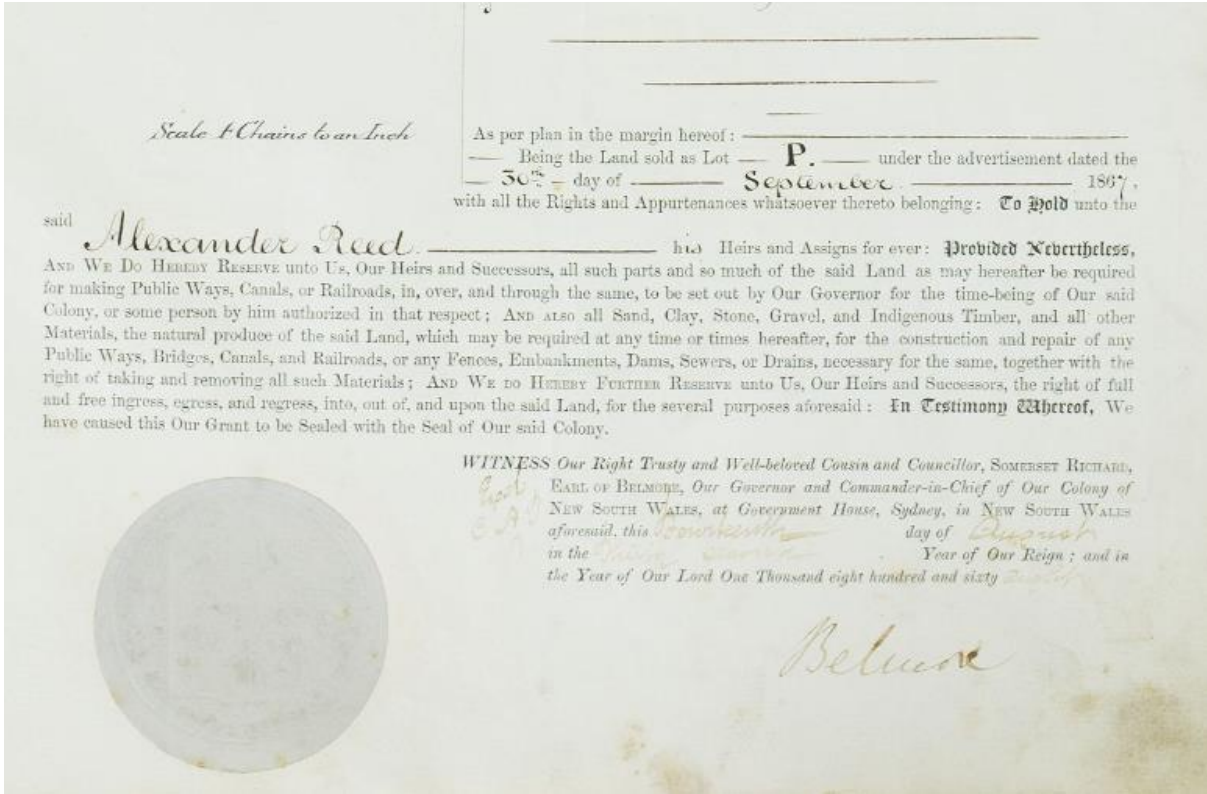 Scale 4 Chains to an Inch
As per plan in the margin hereof:
Being the Land sold as Lot P. under the advertisement dated the
30th day of September 1867,
with all the Rights and Appurtenances whatsoever thereto belonging: To Hold unto the
said Alexander Reed his Heirs and Assigns for ever: Provided Nevertheless,
AND WE DO HEREBY RESERVE unto Us, Our Heirs and Successors, all such parts and so much of the said Land as may hereafter be required
for making Public Ways, Canals, or Railroads, in, over, and through the same, to be set out by Our Governor for the time-being of Our said
Colony, or some person by him authorized in that respect; AND ALSO all Sand, Clay, Stone, Gravel, and Indigenous Timber, and all other
Materials, the natural produce of the said Land, which may be required at any time or times hereafter, for the construction and repair of any
Public Ways, Bridges, Canals, and Railroads, or any Fences, Embankments, Dams, Sewers, or Drains, necessary for the same, together with the
right of taking and removing all such Materials; AND WE DO HEREBY FURTHER RESERVE unto Us, Our Heirs and Successors, the right of full
and free ingress, egress, and regress, into, out of, and upon the said Land, for the several purposes aforesaid: In Testimony Whereof, We
have caused this Our Grant to be Sealed with the Seal of Our said Colony.
WITNESS Our Right Trusty and Well-beloved Cousin and Councillor, SOMERSET RICHARD,
EARL OF BELMORE, Our Governor and Commander-in-Chief of Our Colony of
NEW SOUTH WALES, at Government House, Sydney, in NEW SOUTH WALES
aforesaid, this Fourteenth day of August
in the Year of Our Reign; and in
the Year of Our Lord One Thousand eight hundred and sixty eight
Belmore